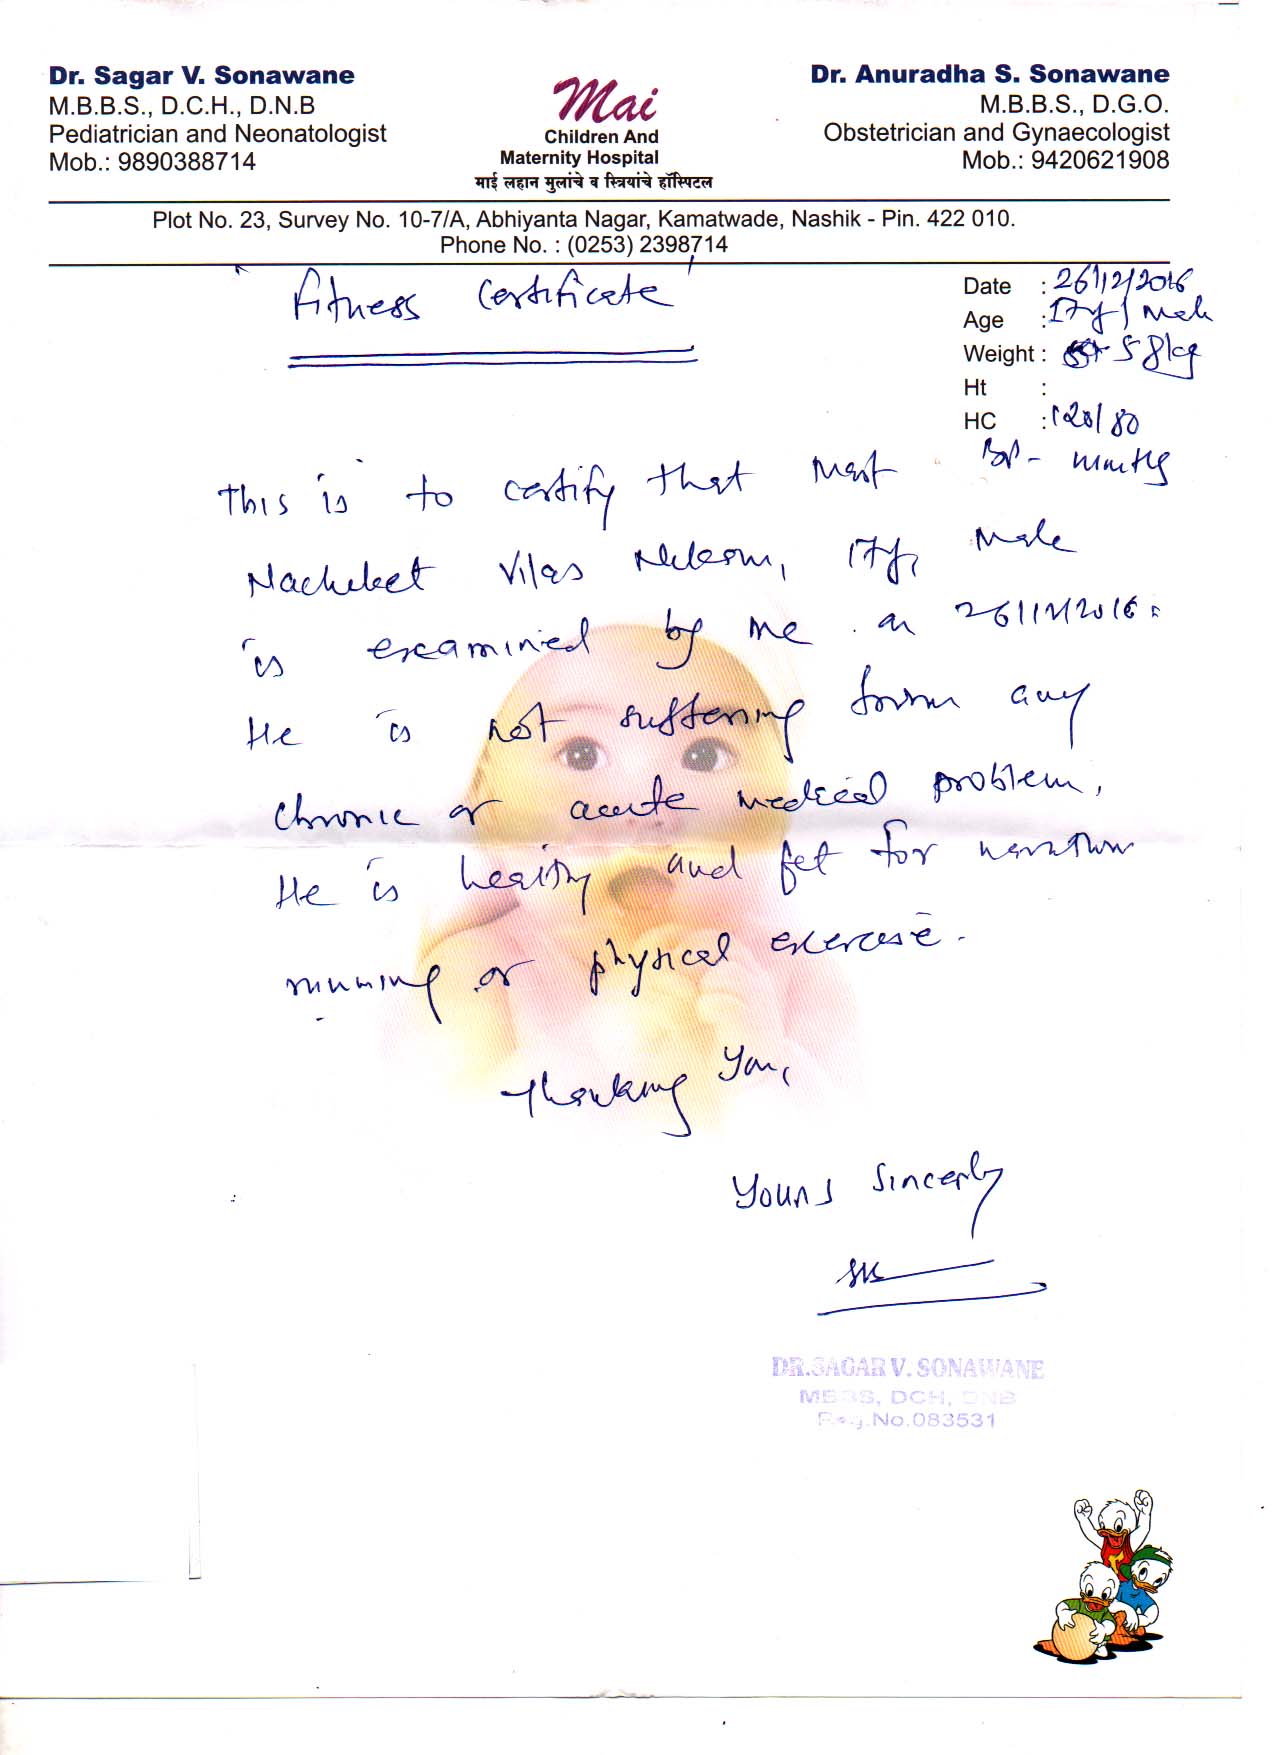 Dr. Sagar V. Sonawane
M.B.B.S., D.C.H., D.N.B
Pediatrician and Neonatologist
Mob.: 9890388714
Mai
Children And
Maternity Hospital
माई लहान मुलांचे व स्त्रियांचे हॉस्पिटल
Dr. Anuradha S. Sonawane
M.B.B.S., D.G.O.
Obstetrician and Gynaecologist
Mob.: 9420621908
Plot No. 23, Survey No. 10-7/A, Abhiyanta Nagar, Kamatwade, Nashik - Pin. 422 010.
Phone No. : (0253) 2398714
"Fitness Certificate"
Date : 26/12/2016
Age : 17y / Male
Weight : 58kg
Ht :
HC : 120/80
BP -
This is to certify that Mast
Nachiket Vilas 17y, Male
is examined by me on 26/12/2016.
He is not suffering from any
chronic or acute medical problem,
He is healthy and fit for marathon
running or physical exercise.
Thanking You,
Yours Sincerly
DR.SAGAR V. SONAWANE
MBBS, DCH, DNB
Reg.No.083531